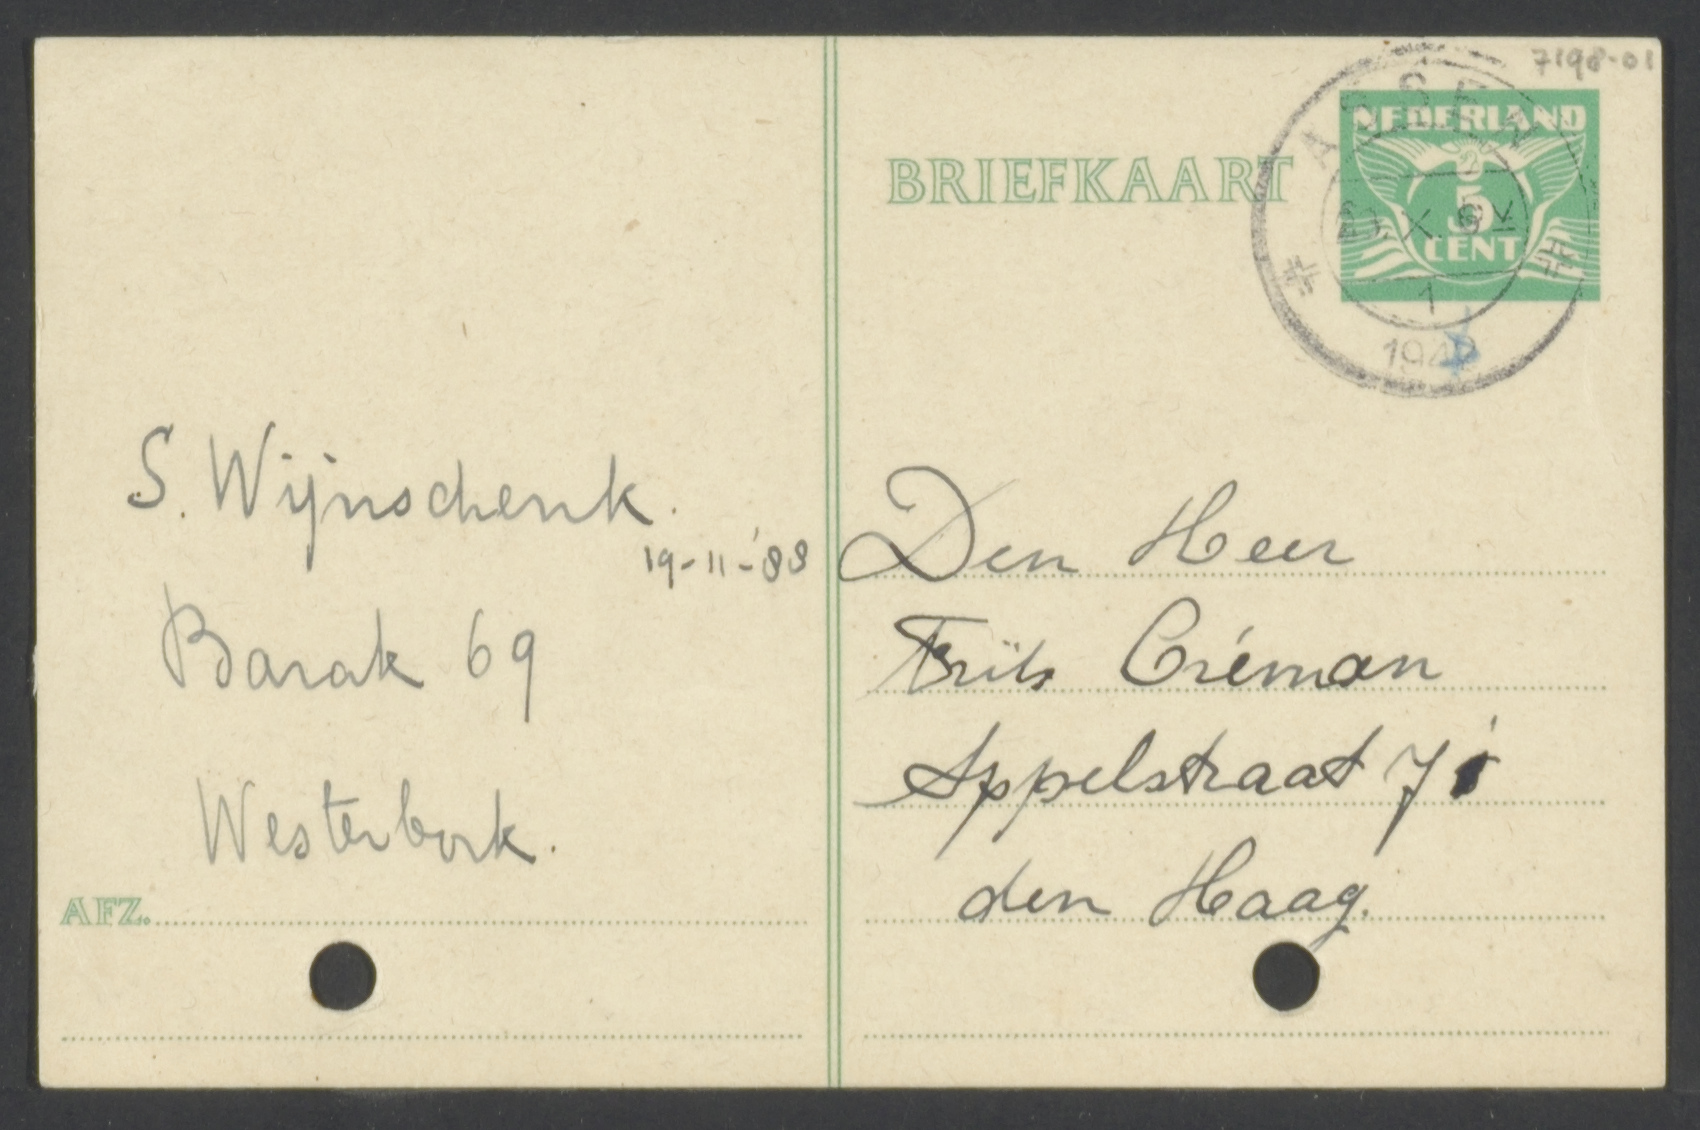 7198-01
ASSEN
NEDERLAND
5
CENT
1
BRIEFKAART
S. Wijnschenk.
19-11-'88
Barak 69
Westerbork.
AFZ.
Den Heer
Frits Créman
Appelstraat 71
den Haag.